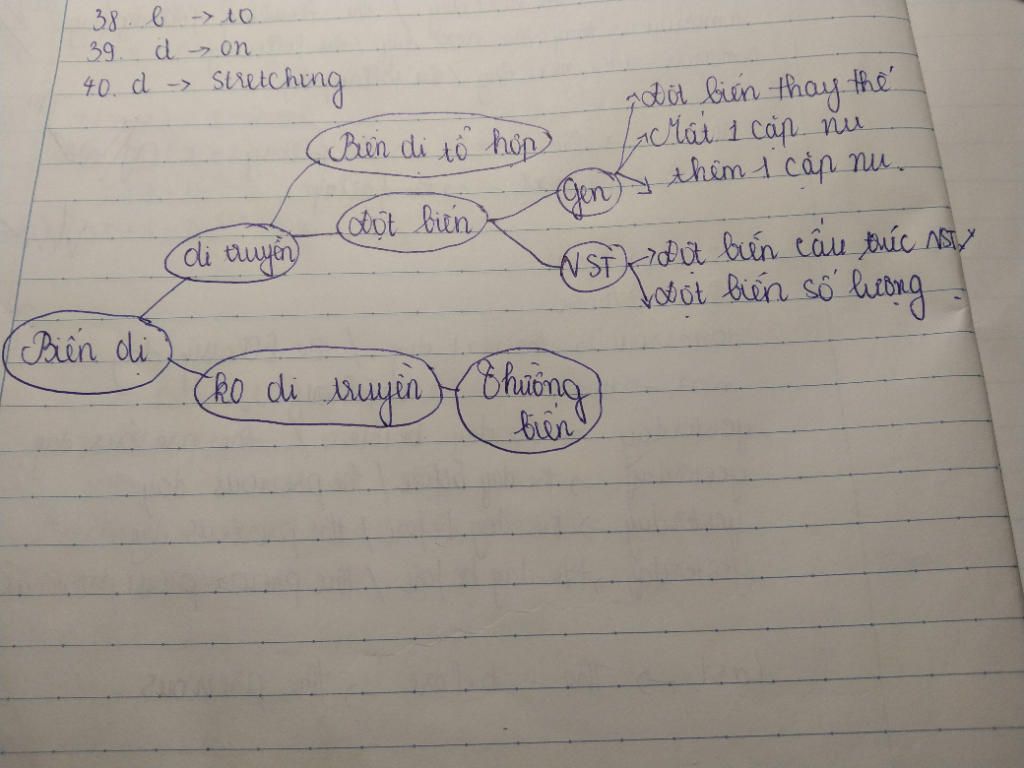 38. b -> to
39. d -> on
40. d -> stretching
Biến dị tổ hợp
Đột biến
di truyền
Biến dị
ko di truyền
Thường
biến
gen
Đột biến thay thế
Mất 1 cặp nu
thêm 1 cặp nu.
NST
Đột biến cấu trúc NST
Đột biến số lượng.